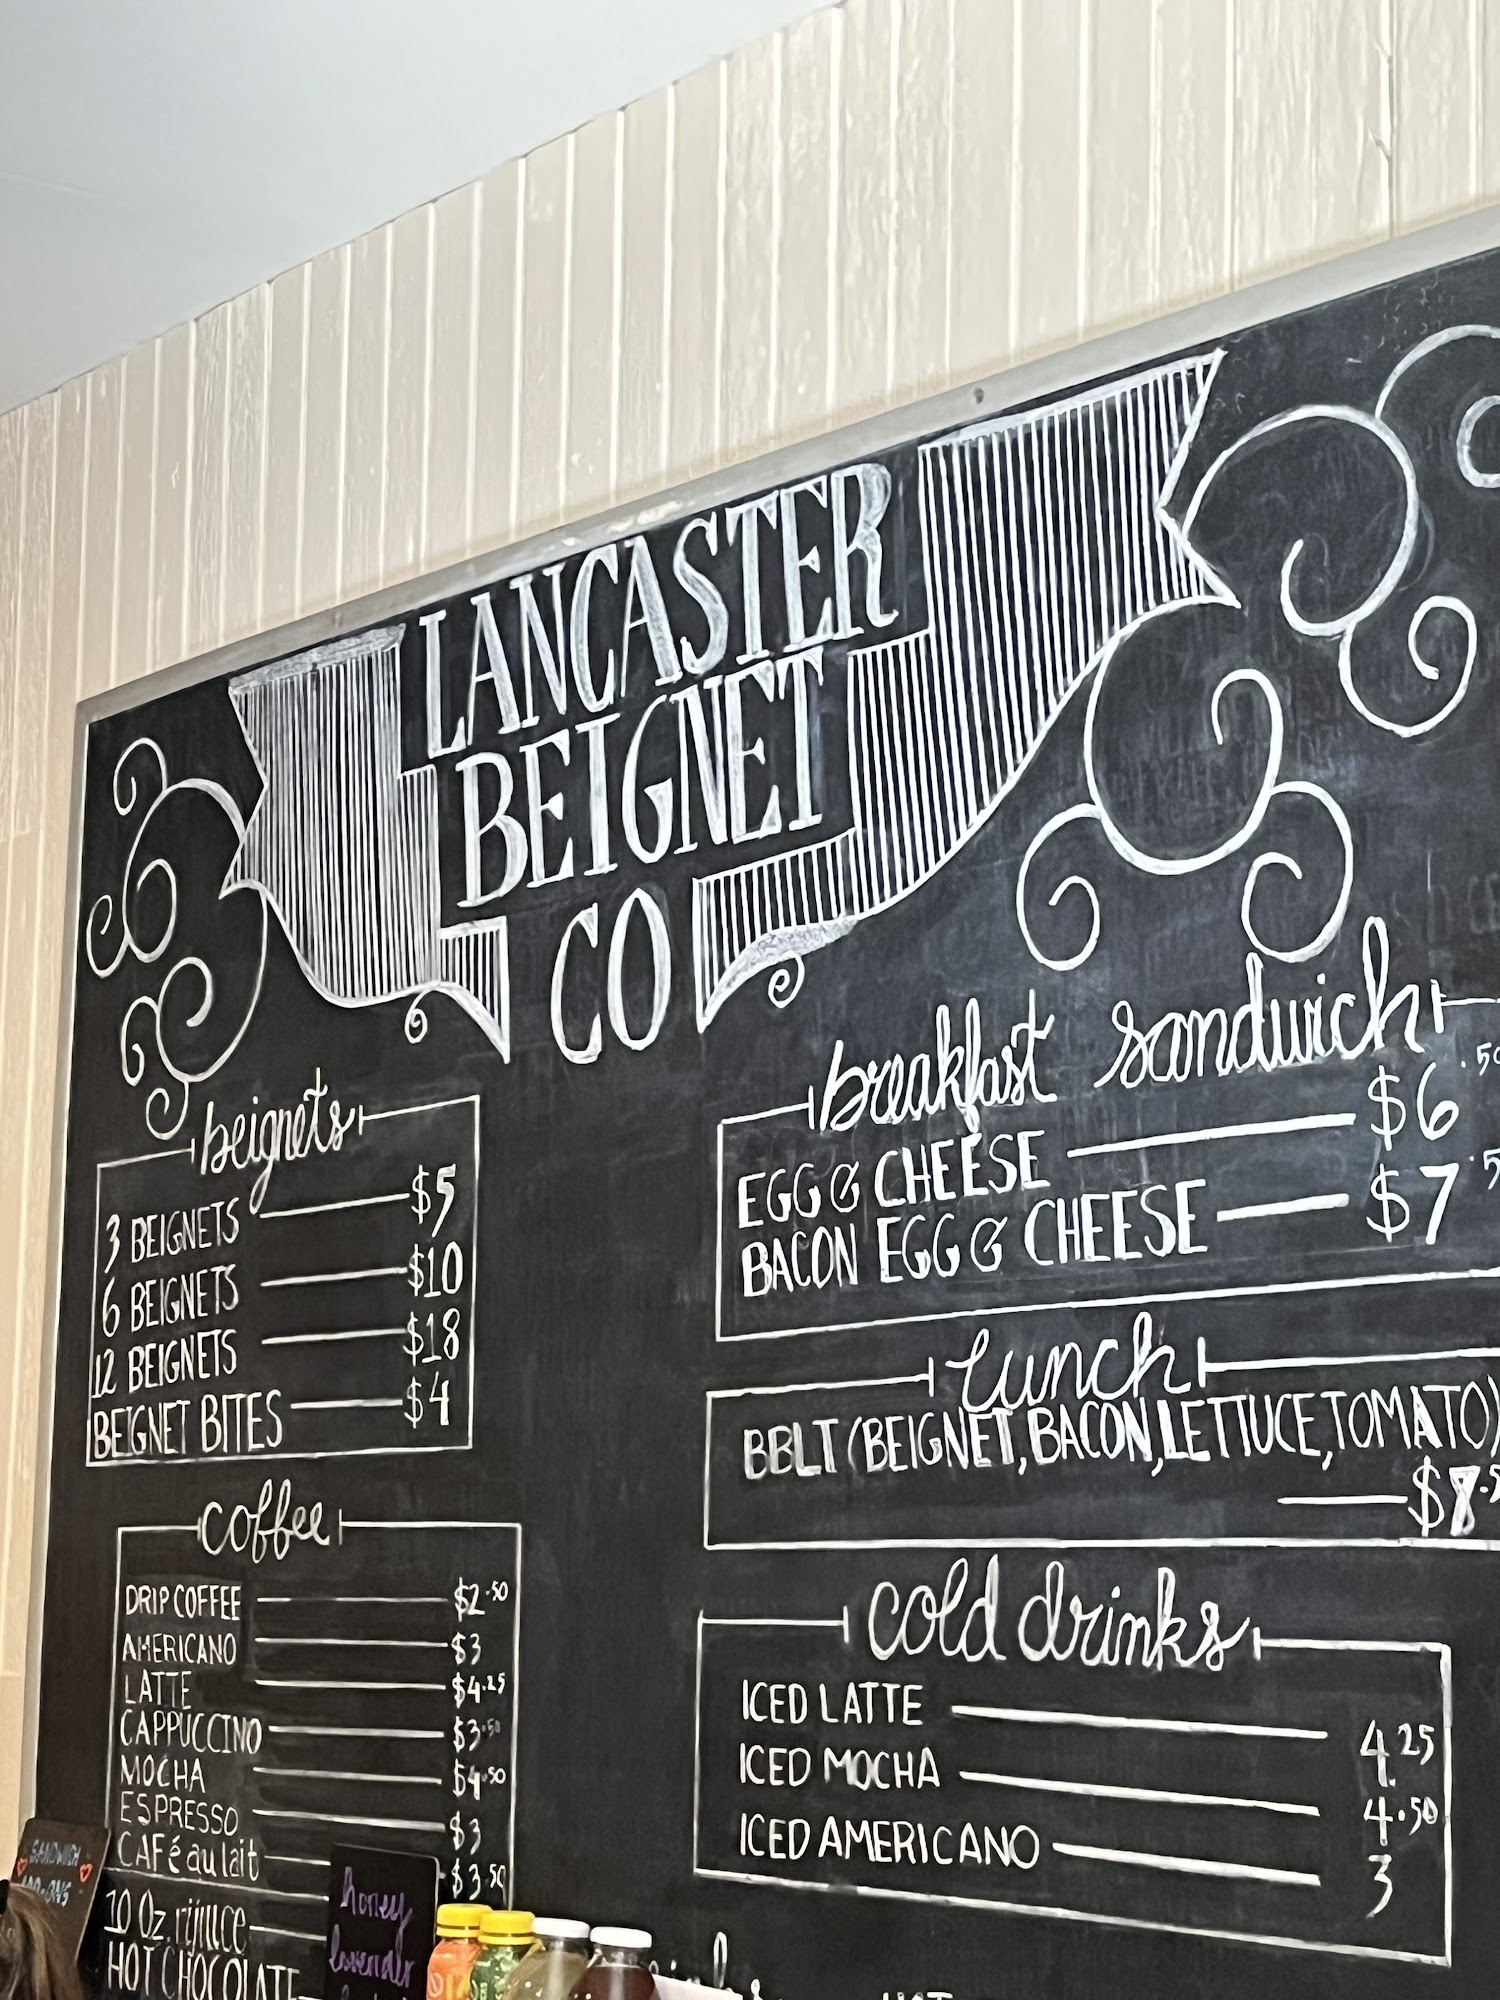 LANCASTER
BEIGNET
CO
beignets
3 BEIGNETS $5
6 BEIGNETS $10
12 BEIGNETS $18
BEIGNET BITES $4
coffee
DRIP COFFEE $2.50
AMERICANO $3
LATTE $4.25
CAPPUCCINO $3.50
MOCHA $4.50
ESPRESSO $3
CAFé au lait $3.50
10 Oz. rijuice
HOT CHOCOLATE
breakfast sandwich
EGG & CHEESE $6.50
BACON EGG & CHEESE $7.5
Lunch
BBLT (BEIGNET, BACON, LETTUCE, TOMATO)
$8.5
cold drinks
ICED LATTE 4.25
ICED MOCHA 4.50
ICED AMERICANO 3
SANDWICH
ADD-ONS
honey
lavender